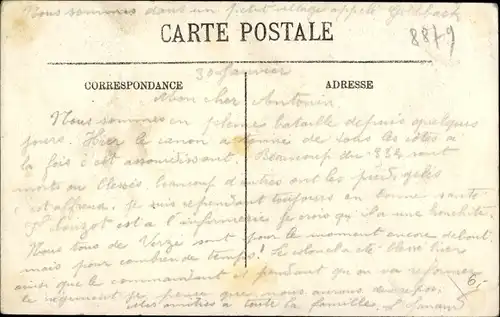 Nous sommes dans un petit village appelé Goldbach
CARTE POSTALE
8879
30 Janvier
CORRESPONDANCE
ADRESSE
Mon cher Antonin
Nous sommes en pleine bataille depuis quelques
jours. Hier le canon a tonné de tous les côtés à
la fois c'est assourdissant. Beaucoup du 334 sont
morts ou blessés, beaucoup d'autres ont les pieds gelés
c'est affreux. Je suis cependant toujours en bonne santé
est à l'infirmerie je crois qu'il a une bronchite
Nous tous de Verzé sont pour le moment encore debout
mais pour combien de temps! Le colonel a été blessé hier
ainsi que le commandant et pendant que on va reformer
le régiment je pense que nous aurons du repos.
6.-
Mes amitiés à toute la famille.